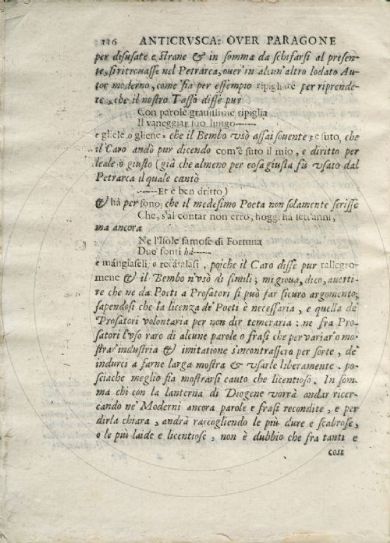 116 ANTICRVSCA: OVER PARAGONE
per disusate e strane & in somma da schifarsi al presen-
te, si ritrouasse nel Petrarca, ouer' in alcun' altro lodato Au-
tor moderno, come sia per essempio ripigliare per riprende-
re, che il nostro Tasso disse pur
Con parole grauissime ripiglia
Il vaneggiar suo lungo
e gliele o gliene, che il Bembo vsò assai souente, e suto, che
il Caro andò pur dicendo com'è suto il mio, e diritto per
leale o giusto (già che almeno per cosa giusta fù vsato dal
Petrarca il quale cantò
Et è ben dritto)
& hà per sono, che il medesimo Poeta non solamente scrisse
Che, s'al contar non erro, hoggi hà sett'anni,
ma ancora
Ne l'Isole famose di Fortuna
Due fonti hà
e mangiaseli, o recatalasi, poiche il Caro disse pur rallegro-
mene & il Bembo n'vsò di simili; mi gioua, dico, auerti-
re che ne da Poeti a Prosatori si può far sicuro argomento,
sapendosi che la licenza de' Poeti è necessaria, e quella de'
Prosatori volontaria per non dir temeraria: ne fra Pro-
satori l'vso raro di alcune parole o frasi che per variar o mo-
strar industria & imitatione s'incontrassero per sorte, de'
indurci a farne larga mostra & vsarle liberamente. po-
sciache meglio sia mostrarsi cauto che licentioso. In som-
ma chi con la lanterna di Diogene vorrà andar ricer-
cando ne' Moderni ancora parole e frasi recondite, e per
dirla chiara, andrà raccogliendo le più dure e scabrose,
o le più laide e licentiose, non è dubbio che fra tanti e
cose